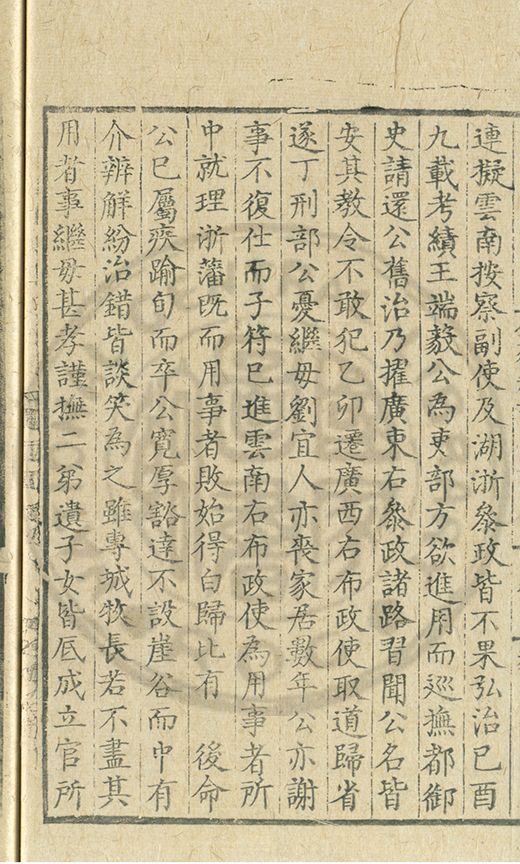 連擬雲南按察副使及湖浙叅政皆不果弘治己酉
九載考績王端毅公為吏部方欲進用而巡撫都御
史請還公舊治乃擢廣東右叅政諸路習聞公名皆
安其教令不敢犯乙卯遷廣西右布政使取道歸省
遂丁刑部公憂繼毋劉宜人亦喪家居數年公亦謝
事不復仕而子符已進雲南右布政使為用事者所
中就理浙藩既而用事者敗始得白歸比有　後命
公已屬疾踰旬而卒公寬厚豁達不設崖谷而中有
介辨解紛治錯皆談笑為之雖專城牧長若不盡其
用者事繼毋甚孝謹撫二弟遺子女皆底成立官所